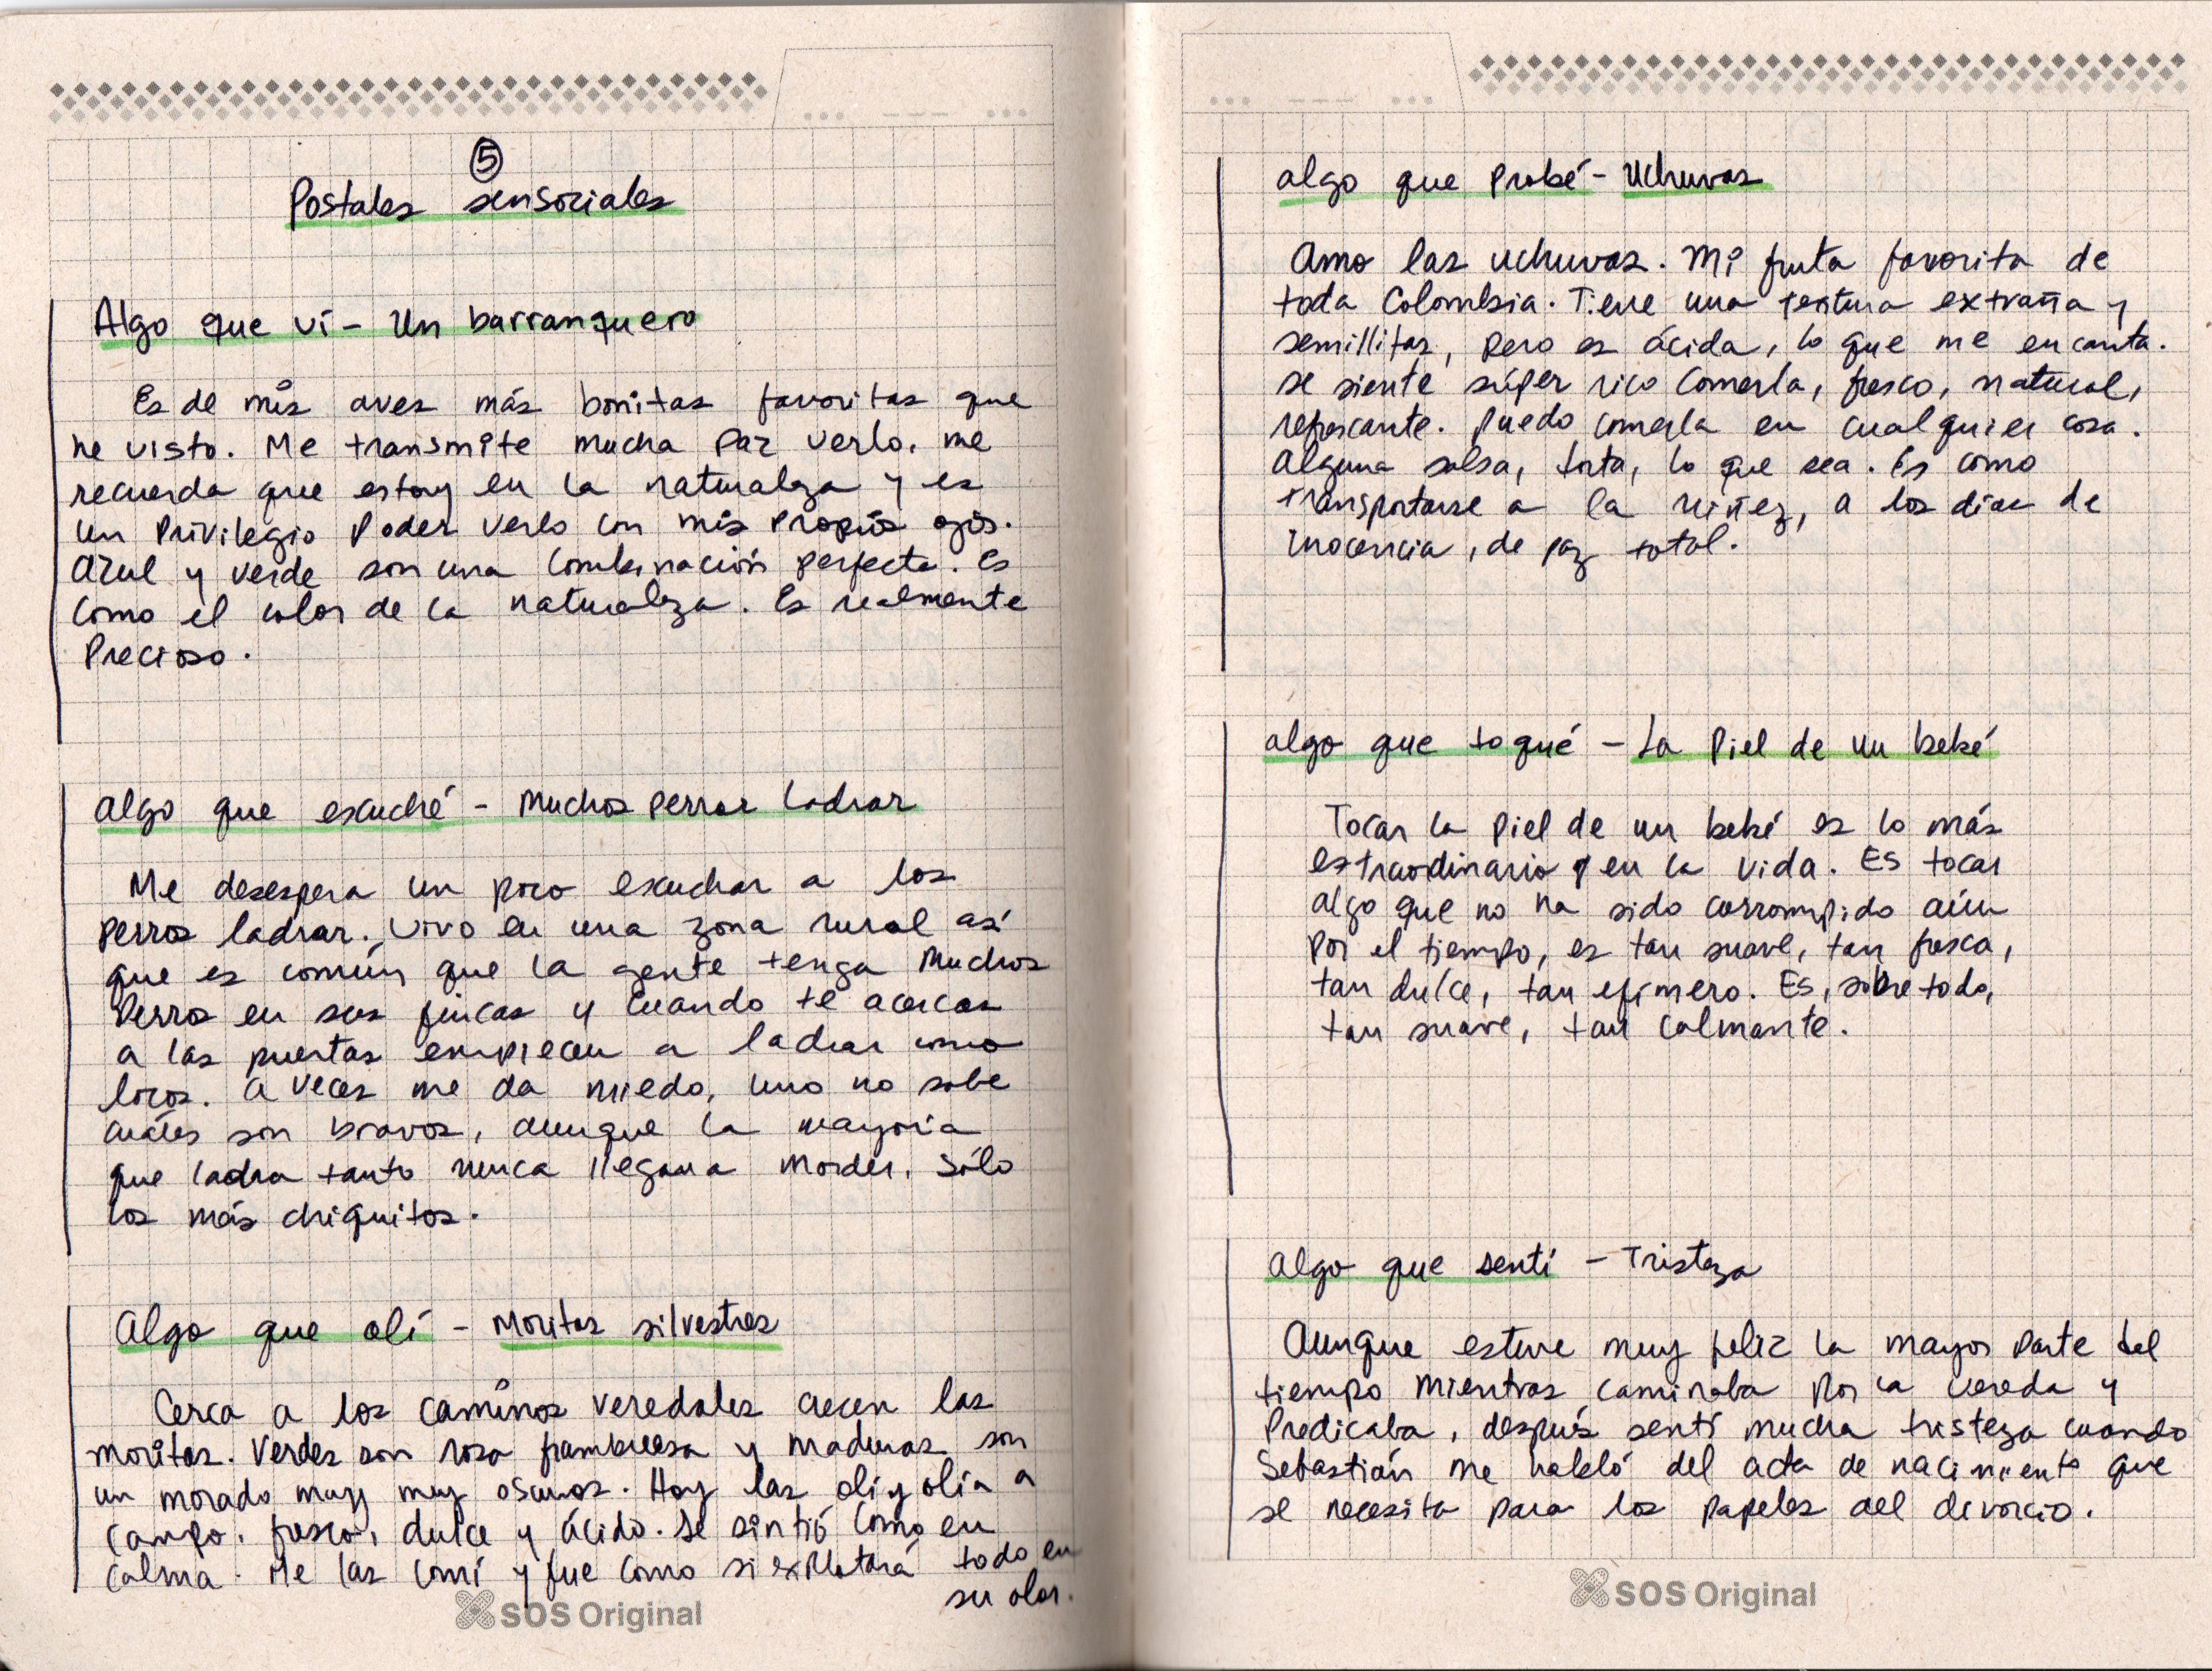 ⑤
Postales sensoriales
Algo que ví - Un barranquero
Es de mis aves más bonitas favoritas que
he visto. Me transmite mucha paz verlo, me
recuerda que estoy en la naturaleza y es
un privilegio poder verlo con mis propios ojos.
Azul y verde son una combinación perfecta. Es
como el color de la naturaleza. Es realmente
precioso.
Algo que escuché - Muchos perros ladrar
Me desespera un poco escuchar a los
perros ladrar. Vivo en una zona rural así
que es común que la gente tenga muchos
perros en sus fincas y cuando te acercas
a las puertas empiecen a ladrar como
locos. A veces me da miedo, uno no sabe
cuáles son bravos, aunque la mayoría
que ladra tanto nunca llegan a morder. Sólo
los más chiquitos.
Algo que olí - Moritas silvestres
Cerca a los caminos veredales crecen las
moritas. Verdes son rosa frambuesa y maduras son
un morado muy muy oscuros. Hoy las olí y olía a
campo, fresco, dulce y ácido. Se sintió como en
calma. Me las comí y fue como si explotará todo en
su olor.
SOS Original
algo que probé - Uchuvas
Amo las uchuvas. Mi fruta favorita de
toda Colombia. Tiene una textura extraña y
semillitas, pero es ácida, lo que me encanta.
se siente súper rico comerla, fresco, natural,
refrescante. Puedo comerla en cualquier cosa.
Alguna salsa, torta, lo que sea. Es como
transportarse a la niñez, a los días de
inocencia, de paz total.
algo que toqué - La piel de un bebé
Tocar la piel de un bebé es lo más
extraordinario en la vida. Es tocar
algo que no ha sido corrompido aún
por el tiempo, es tan suave, tan fresca,
tan dulce, tan efímero. Es, sobre todo,
tan suave, tan calmante.
Algo que sentí - Tristeza
Aunque estuve muy feliz la mayor parte del
tiempo mientras caminaba por la vereda y
predicaba, después sentí mucha tristeza cuando
Sebastián me habló del acta de nacimiento que
se necesita para los papeles del divorcio.
SOS Original